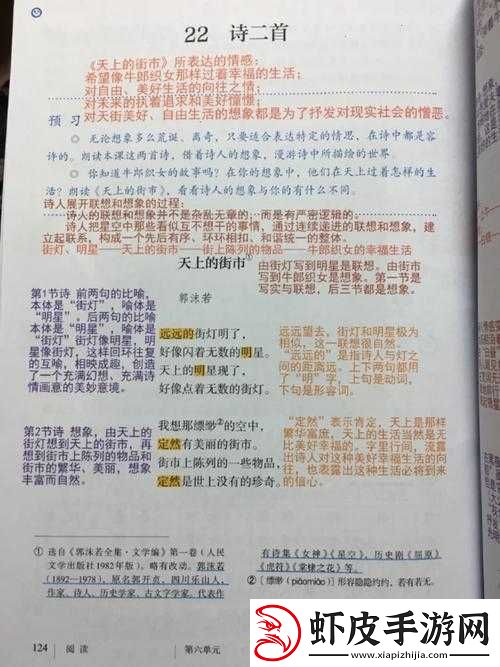 22 诗二首
《天上的街市》所表达的情感：
希望像牛郎织女那样过着幸福的生活；
对自由、美好生活的向往之情；
对未来的执着追求和美好憧憬；
预习 对天街美好、自由生活的想象都是为了抒发对现实社会的憎恶。
◎ 无论想象多么荒诞、离奇，只要适合表达特定的情思，在诗中都是容
许的。朗读本课这两首诗，借着诗人的想象，漫游诗中所描绘的世界。
◎ 你知道牛郎织女的故事吗？在你的想象中，他们在天上过着怎样的生
活？朗读《天上的街市》，看看诗人的想象与你的有什么不同。
诗人展开联想和想象的过程：
诗人的联想和想象并不是杂乱无章的，而是有严密逻辑的。
诗人把星空中那些看似互不想干的事情，通过连续递进的联想和想象，建
立起联系，构成一个先后有序、环环相扣、和谐统一的整体。
街灯、明星——天上的街市——街上陈列的物品——牛郎织女的幸福生活
天上的街市①
郭沫若
由街灯写到明星是联想。由街市
写到牛郎织女是想象。第一节是
写实与联想，后三节都是想象。
第1节诗 前两句的比喻，
本体是“街灯”，喻体是
“明星”。后两句的比喻
本体是“明星”，喻体是
“街灯”街灯像明星，明
星像街灯，这样回环往复
的互喻，相映成趣，创造
了一个充满幻想、充满诗
情画意的美妙意境。
远远的街灯明了，
好像闪着无数的明星。
天上的明星现了，
好像点着无数的街灯。
远远望去，街灯和明星极为
相似，这一联想很自然。
“远远的”是指诗人与灯之
间的距离远。上下两句都用
了“明”字，上句是动词，
下句是形容词。
第2节诗 想象，由天上的
街灯想到天上的街市，再
想到街市上陈列的物品和
街市的繁华、美丽，想象
丰富而自然。
我想那缥缈②的空中，
定然有美丽的街市。
街市上陈列的一些物品，
定然是世上没有的珍奇。
“定然”表示肯定，天上是那样
繁华富庶，天上的生活当然是无
比美好幸福的。字里行间，流露
出诗人对这种美好幸福生活的向
往，也表露出这种生活必将到来
的信心。
① 选自《郭沫若全集·文学编》第一卷（人民
文学出版社1982年版）。略有改动。郭沫若
（1892—1978），原名郭开贞，四川乐山人，
作家、诗人、历史学家、古文字学家。代表作
有诗集《女神》《星空》，历史剧《屈原》
《虎符》《棠棣之花》等。
②〔缥缈（piāomiǎo）〕形容隐隐约约，若有若无。
124 阅读 第六单元
虾皮手游网
www.xiapizhijia.com